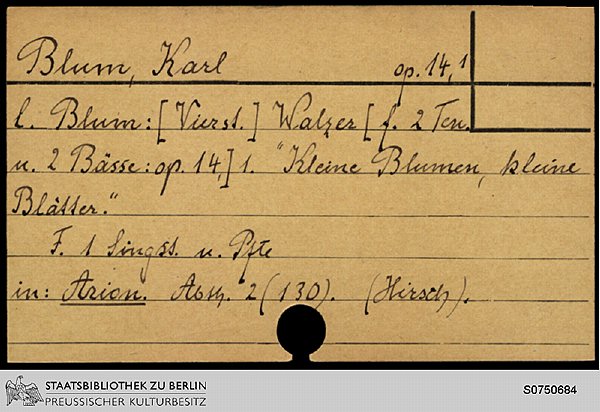 Blum, Karl op. 14,1
C. Blum: [Vierst.] Walzer [f. 2 Ten.
u. 2 Bässe: op. 14,] 1. "Kleine Blumen, kleine
Blätter."
F. 1 Singst. u. Pfte
in: Arion. Abth. 2 (130). (Hirsch).
STAATSBIBLIOTHEK ZU BERLIN
PREUSSISCHER KULTURBESITZ
S0750684